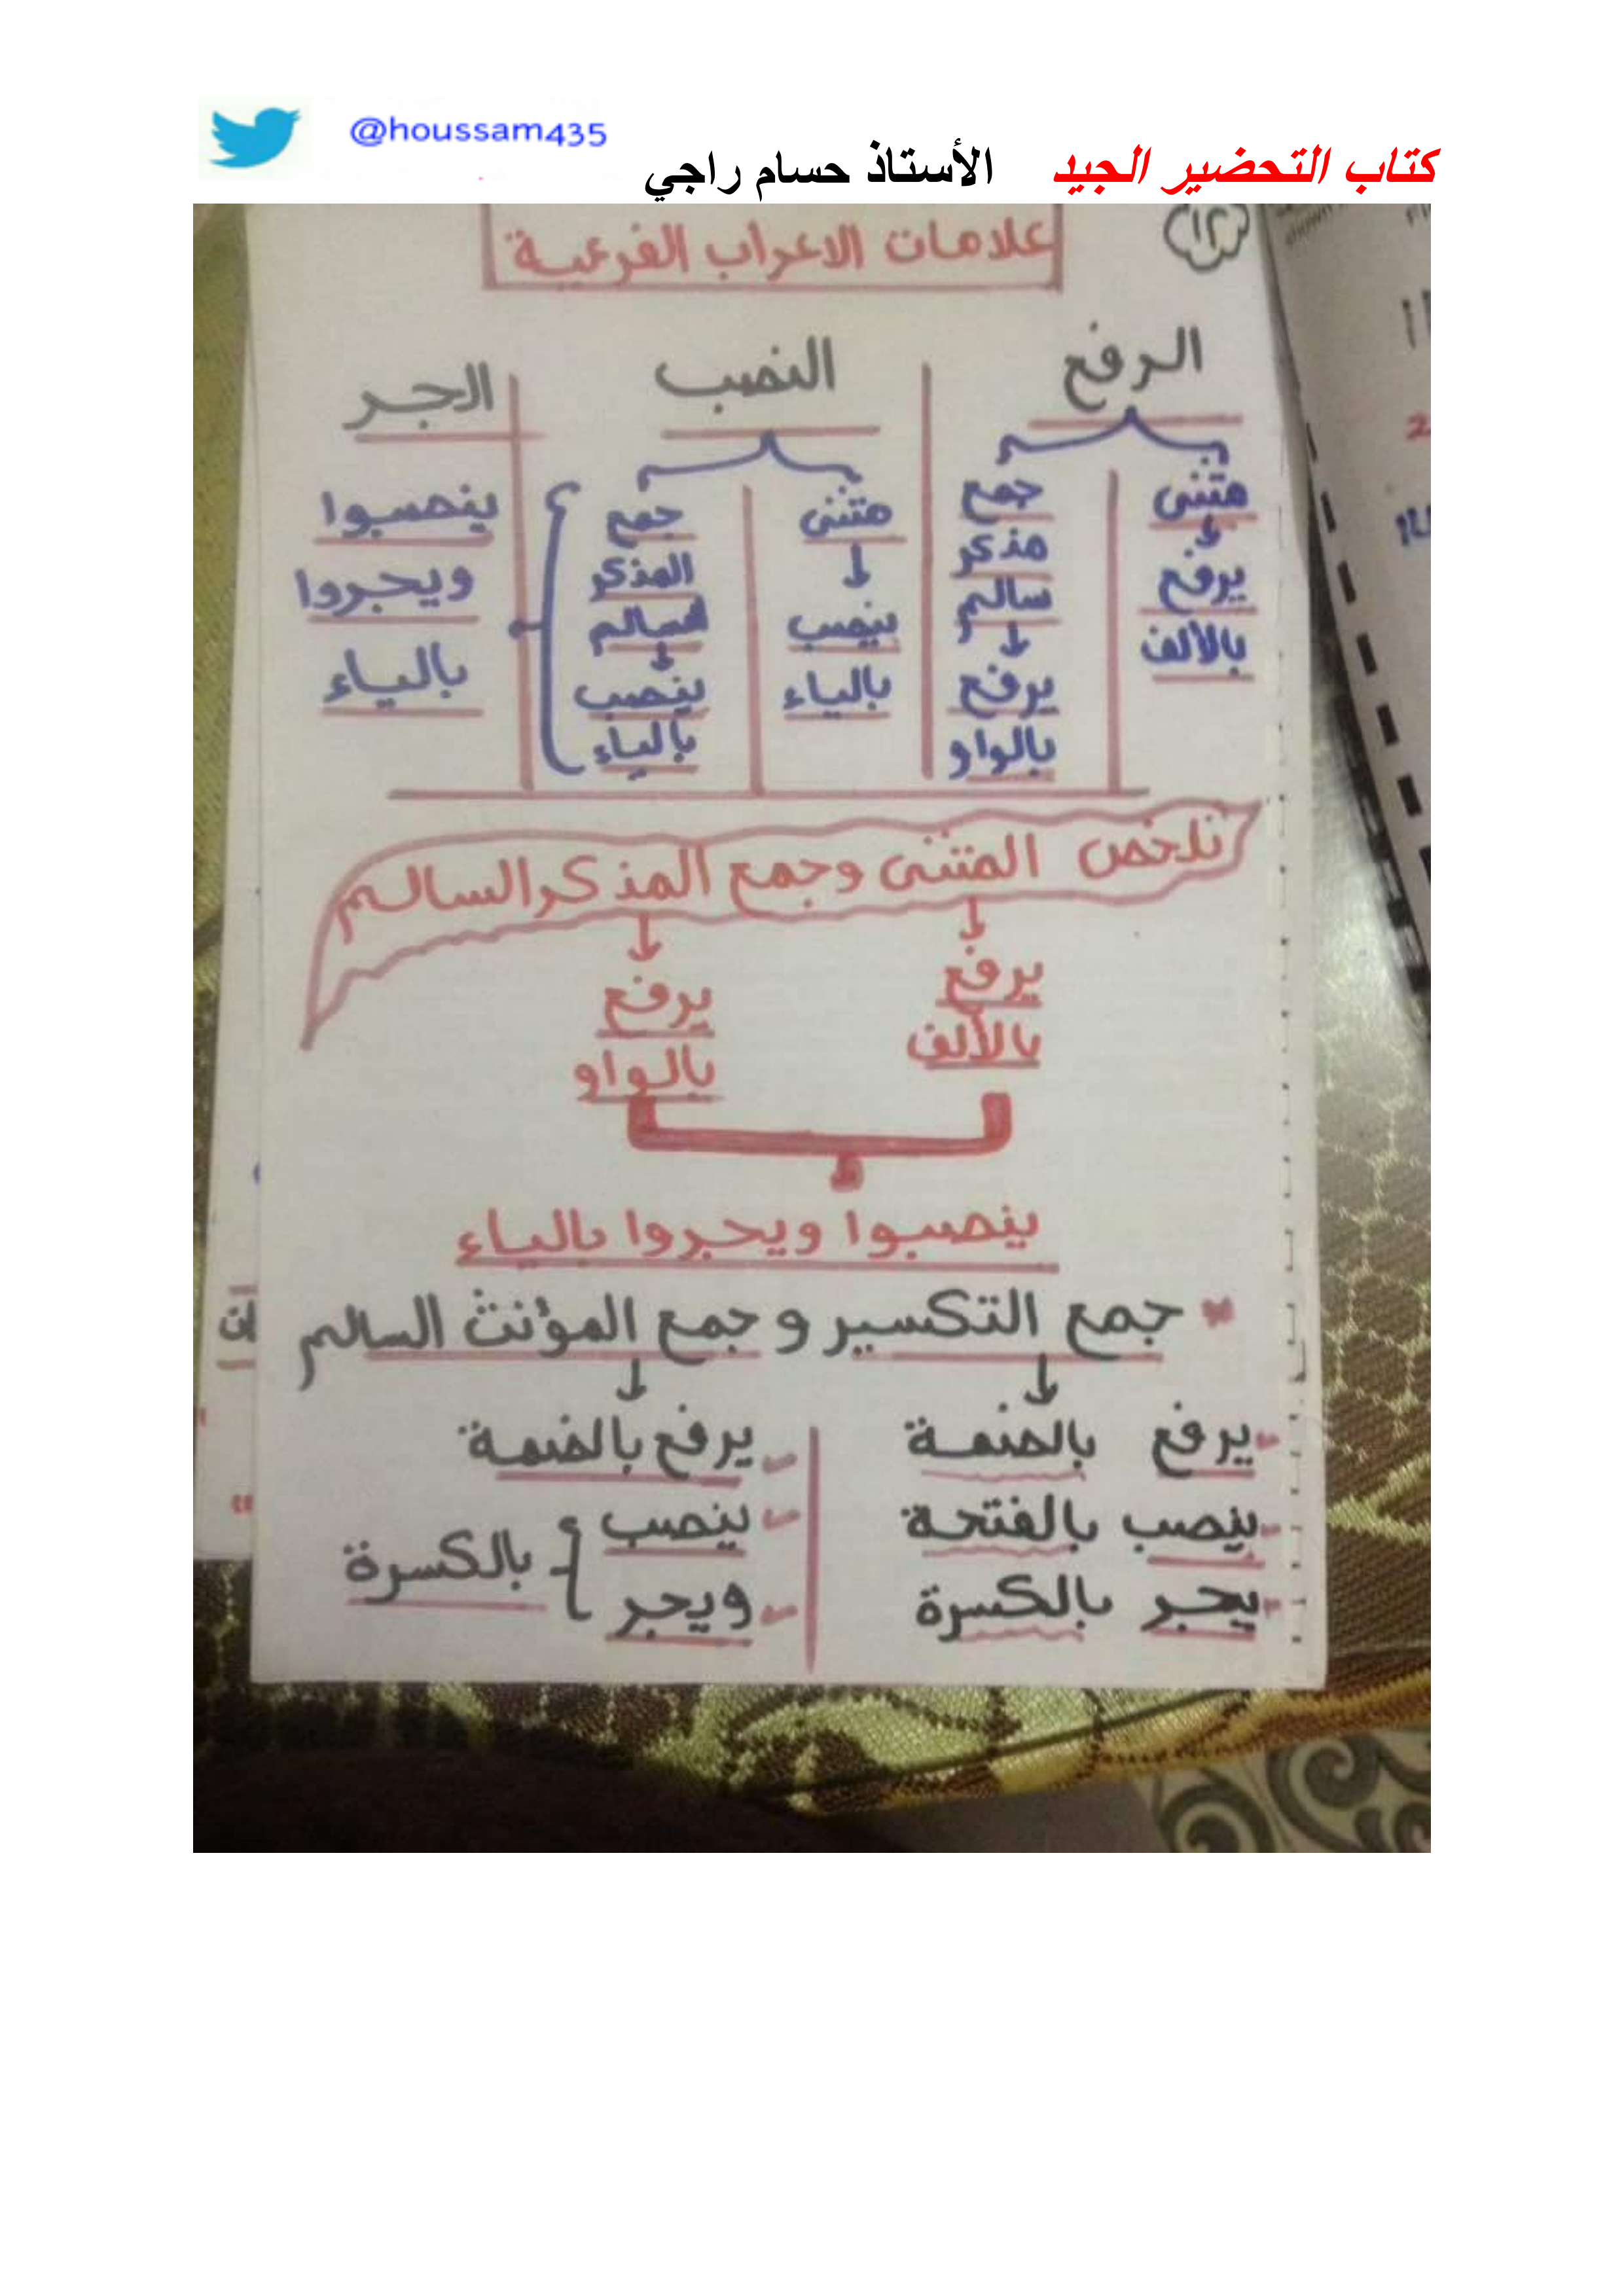 كتاب التحضير الجيد الأستاذ حسام راجي @houssam435
١٢
علامات الاعراب الفرعية
الرفع
مثنى
يرفع
بالألف
جمع
مذكر
سالم
يرفع
بالواو
النصب
مثنى
ينصب
بالياء
جمع
المذكر
السالم
ينصب
بالياء
الجر
ينصبوا
ويجروا
بالياء
نلخص المثنى وجمع المذكر السالم
يرفع
بالألف
يرفع
بالواو
ينصبوا ويجروا بالياء
* جمع التكسير و جمع المؤنث السالم
- يرفع بالضمة
- ينصب بالفتحة
- يجر بالكسرة
- يرفع بالضمة
- ينصب
- ويجر
بالكسرة